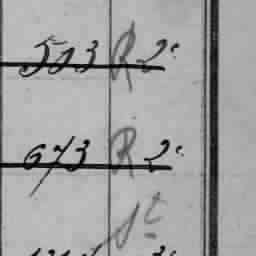 523 R 2e
673 R 2e
St